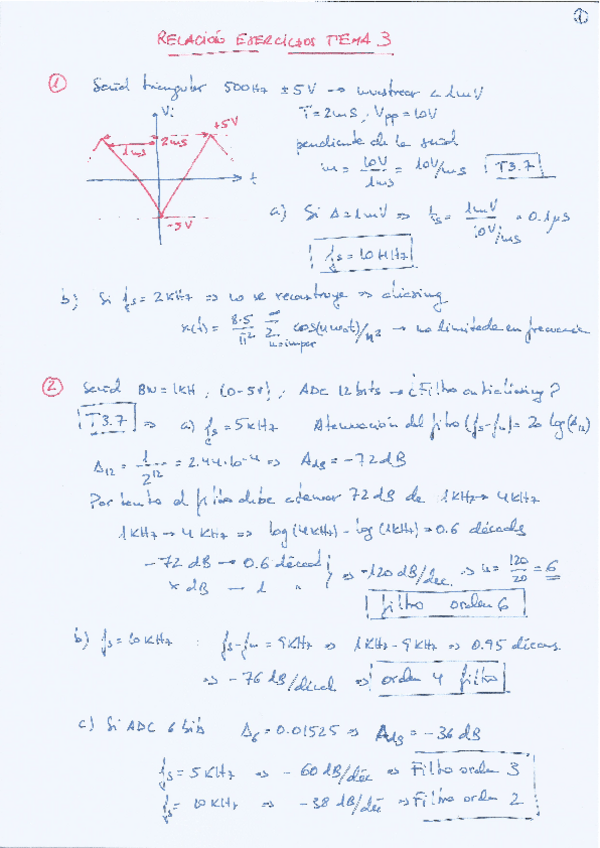 ①
RELACIÓN EJERCICIOS TEMA 3
① Señal triangular 500Hz ±5V → muestrear a 1mV
T=2ms ; Vpp=10V
Vi
+5V
2ms
1ms
t
-5V
pendiente de la señal
m = 10V/1ms = 10V/ms T3.7
a) Si Δ=1mV ⇒ ts = 1mV/10V/ms = 0.1μs
fs = 10MHz
b) Si fs = 2KHz ⇒ no se reconstruye ⇒ aliasing
x(t) = 8·5/π² ∑ cos(nω₀t)/n² → no limitada en frecuencia
∞
n=impar
② Señal BW=1KH ; (0-5V) ; ADC 12bits → ¿Filtro antialiasing?
T3.7 ⇒ a) fs = 5KHz Atenuación del filtro (fs-fm) = 20 log(Δ12)
Δ12 = 1/2^12 = 2.44·10^-4 ⇒ AdB = -72dB
Por tanto el filtro debe atenuar 72dB de 1KHz → 4KHz
1KHz → 4KHz ⇒ log(4KHz) - log(1KHz) = 0.6 décadas
-72 dB → 0.6 décad
x dB → 1 "
⇒ -120dB/dec. ⇒ n = 120/20 = 6
filtro orden 6
b) fs = 10KHz : fs-fm = 9KHz ⇒ 1KHz - 9KHz ⇒ 0.95 décas
⇒ -76 dB/décad ⇒ orden 4 filtro
c) Si ADC 6 bits Δ6 = 0.01525 ⇒ AdB = -36dB
fs = 5KHz ⇒ -60dB/déc ⇒ Filtro orden 3
fs = 10KHz ⇒ -38dB/déc ⇒ Filtro orden 2